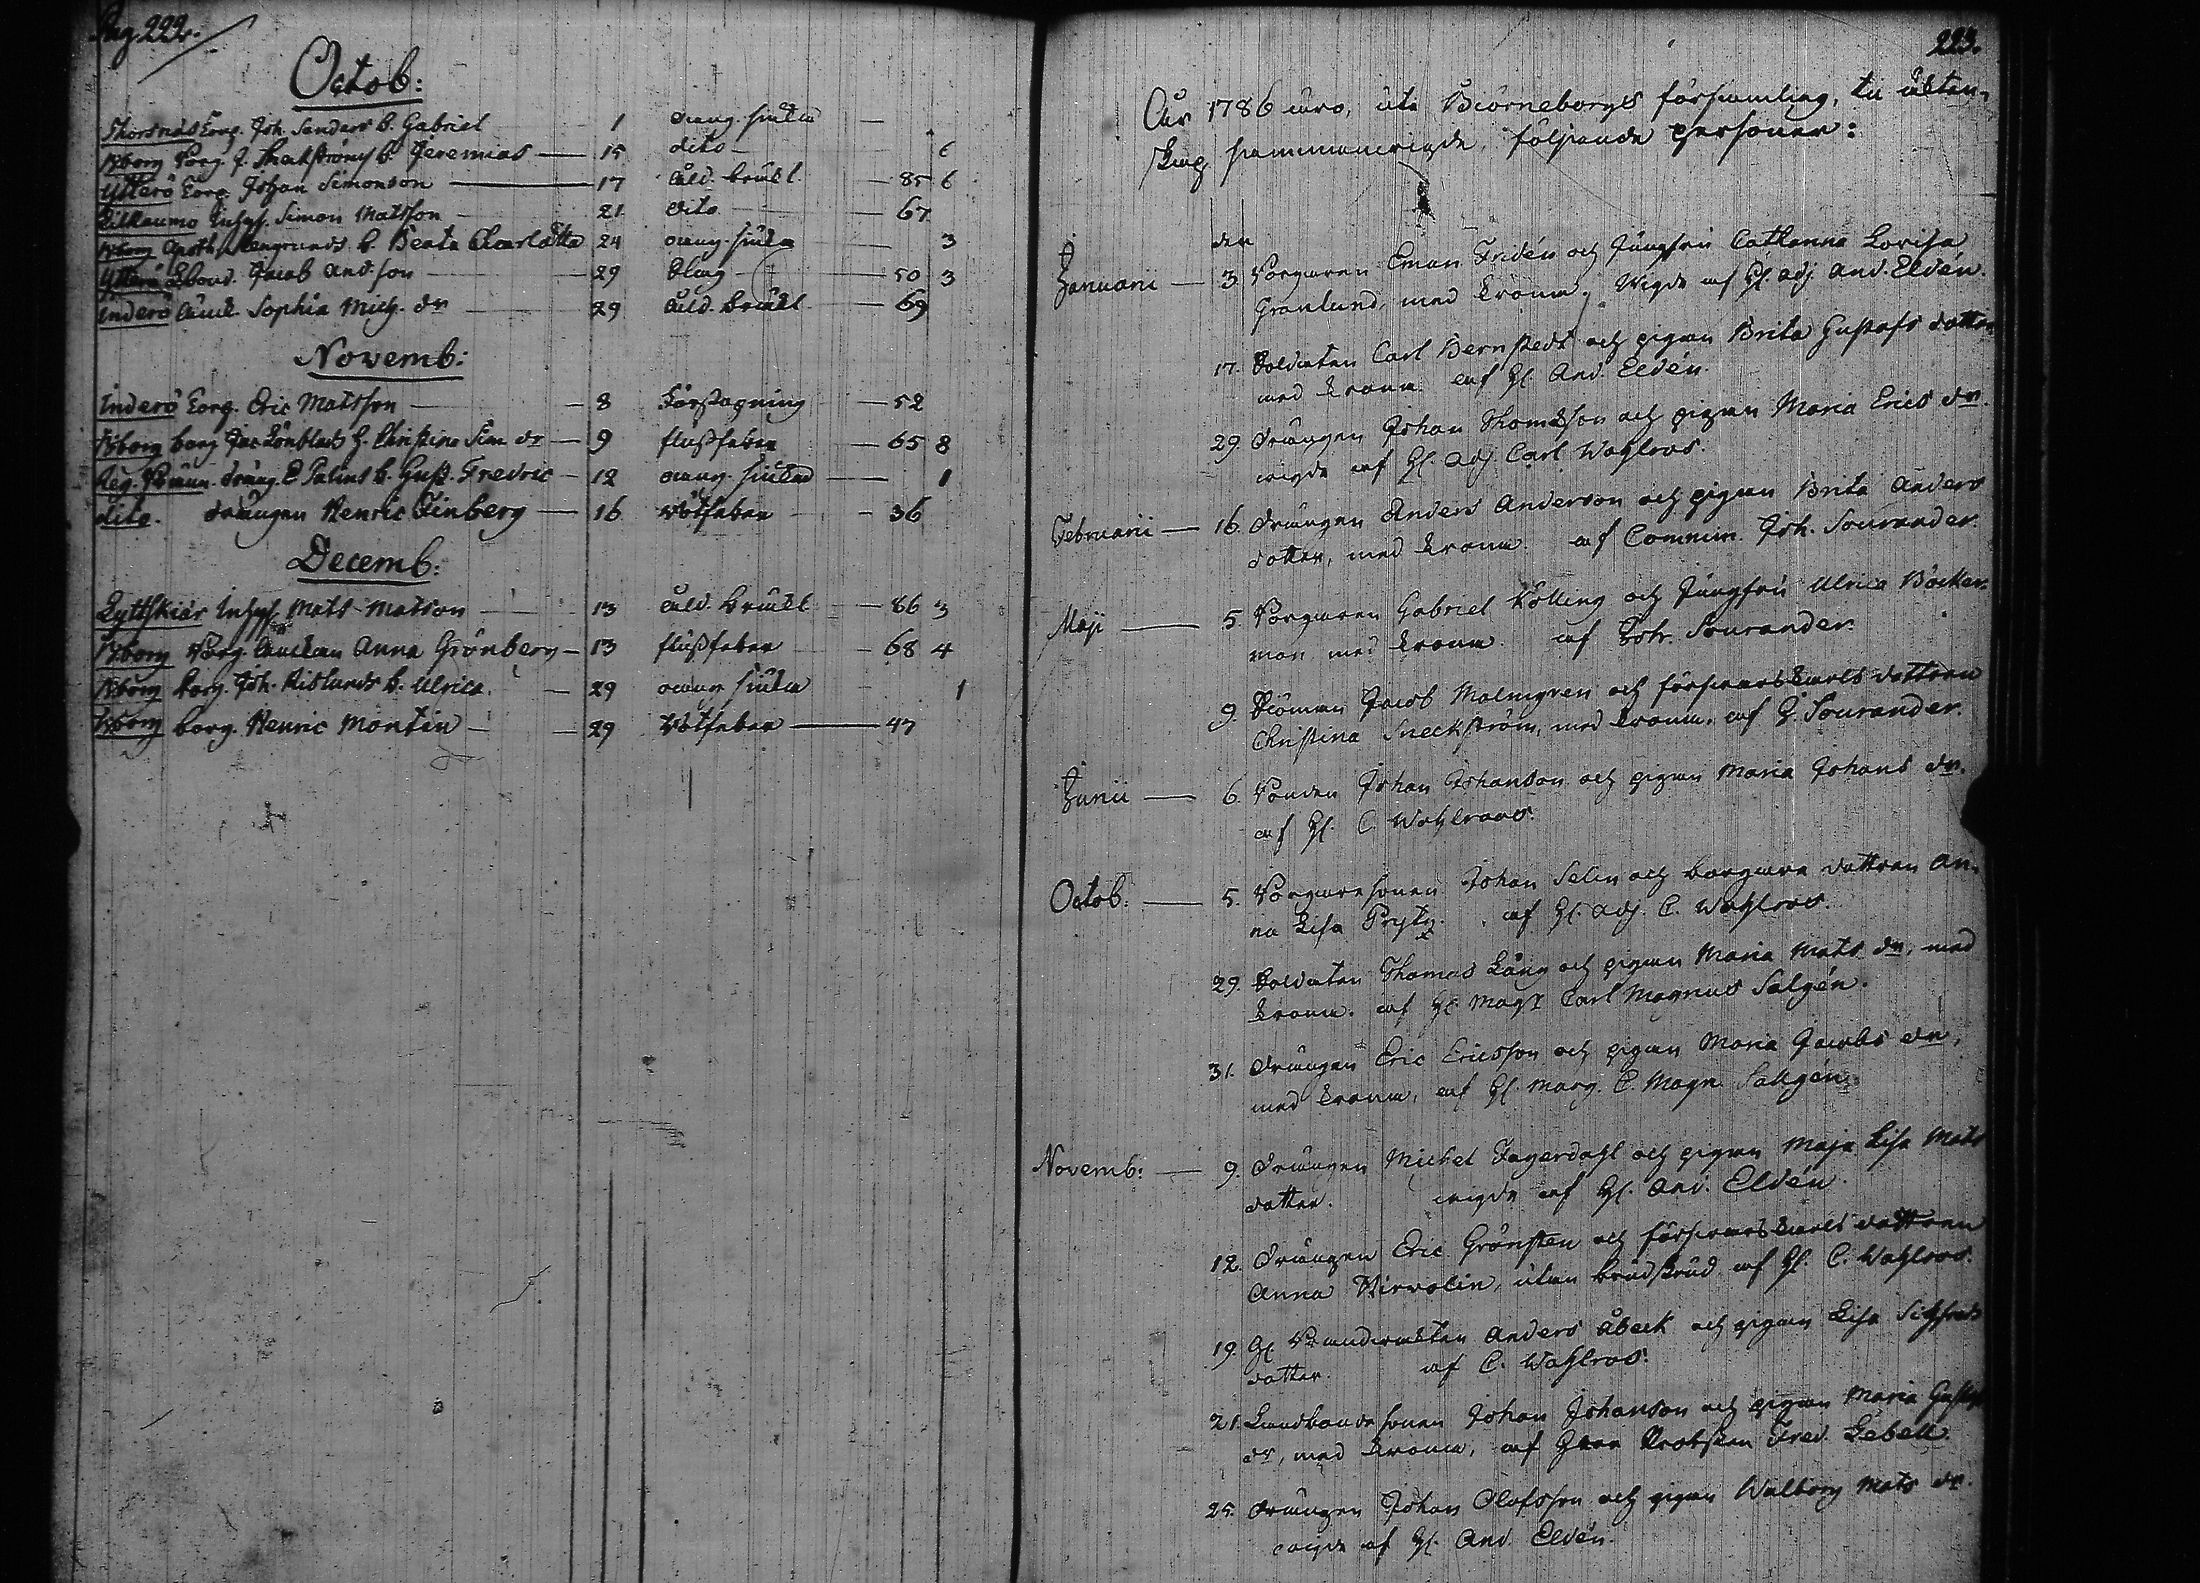 Pag 222.
Octob:
Thorsnäs Torp. Joh. Sanders b. Gabriel 1 okeng. siuka
Bborg borg. J. b. Jeremias 15 dito 6
Ytterö Torp. Johan Simonson 17 åld. bräckl. 85 6
Inhys. Simon Matsson 21 dito 67
Bborg Apoth. b. Beata Charlotta 24 okeng. siuka 3
Ytterö Jacob And.son 29 Slag 50 3
Inderö änk. Sophia Mich. dr 29 åld. bräckl. 69
Novemb:
Inderö Torp. Eric Matsson 8 Förstopning 52
Bborg borg. Jac Lönblads h. Christina Sim. dr 9 flussfeber 65 8
dräng. E Palins b. Gust. Fredric 12 okeng. siukd 1
dito. drängen Henric Finberg 16 Rötfeber 36
Decemb:
Lyttskiär Inhys. Mats Matson 13 åld. bräckl. 86 3
Bborg Borg. änkan Anna Grönberg 13 flussfeber 68 4
Bborg borg. Joh. b. Ulrica. 29 okeng siuka 1
Bborg borg. Henric Montin 29 Rötfeber 47
223.
Åhr 1786 äro, uti Biörneborgs församling, til äkten-
skap sammanvigde, följande personer:
den
Januarii 3. Borgaren Eman Fridén och Jungfru Catharina Lovisa
Granlund, med krona. Wigde af H. Adj. And. Eldén.
17. Soldaten Carl Bernstedt och pigan Brita Gustafs dotter
med krona af H. And. Eldén.
29. Drängen Johan Thomasson och pigan Maria Erics dr.
vigde af H. Adj Carl Wahlroos.
Februarii 16. Drängen Anders Anderson och pigan Brita Anders
dotter, med krona. af Commin. Joh. Sourander.
Maji 5. Borgaren Gabriel Kölling och Jungfru Ulrica Böcker-
man med krona. af Sourander.
9. Siöman Jacob Malmgren och förspanskarls dottren
Christina Sneckström, med krona. af J. Sourander.
Junii 6. Bonden Johan Johanson och pigan Maria Johans dr.
af H. C. Wahlroos.
Octob. 5. Borgaresonen Johan Selin och borgare dottren An-
na Lisa Prytz. af H. Adj. C. Wahlroos.
29. Soldaten Thomas Lång och pigan Maria Mats dr, med
krona. af H. Mag. Carl Magnus Salgén.
31. Drängen Eric Ericsson och pigan Maria Jacobs dr,
med krona, af H. Mag. C. Magn. Salgén.
Novemb: 9. Drängen Michel Fagerdahl och pigan Maja Lisa Mats
dotter. vigde af H. And. Eldén.
12. Drängen Eric Grönsten och förspanskarls dottren
Anna Wirvolin, utan brudskrud af H. C. Wahlroos.
19. H. Anders Åbeck och pigan Lisa Sigfreds
dotter. af C. Wahlroos.
21. Landbonde sonen Johan Johanson och pigan Maria Gustafs
dr, med krona, af Herr Probsten Fred. Lebell.
25. Drängen Johan Olofsson och pigan Walborg Mats dr.
vigde af H. And. Eldén.